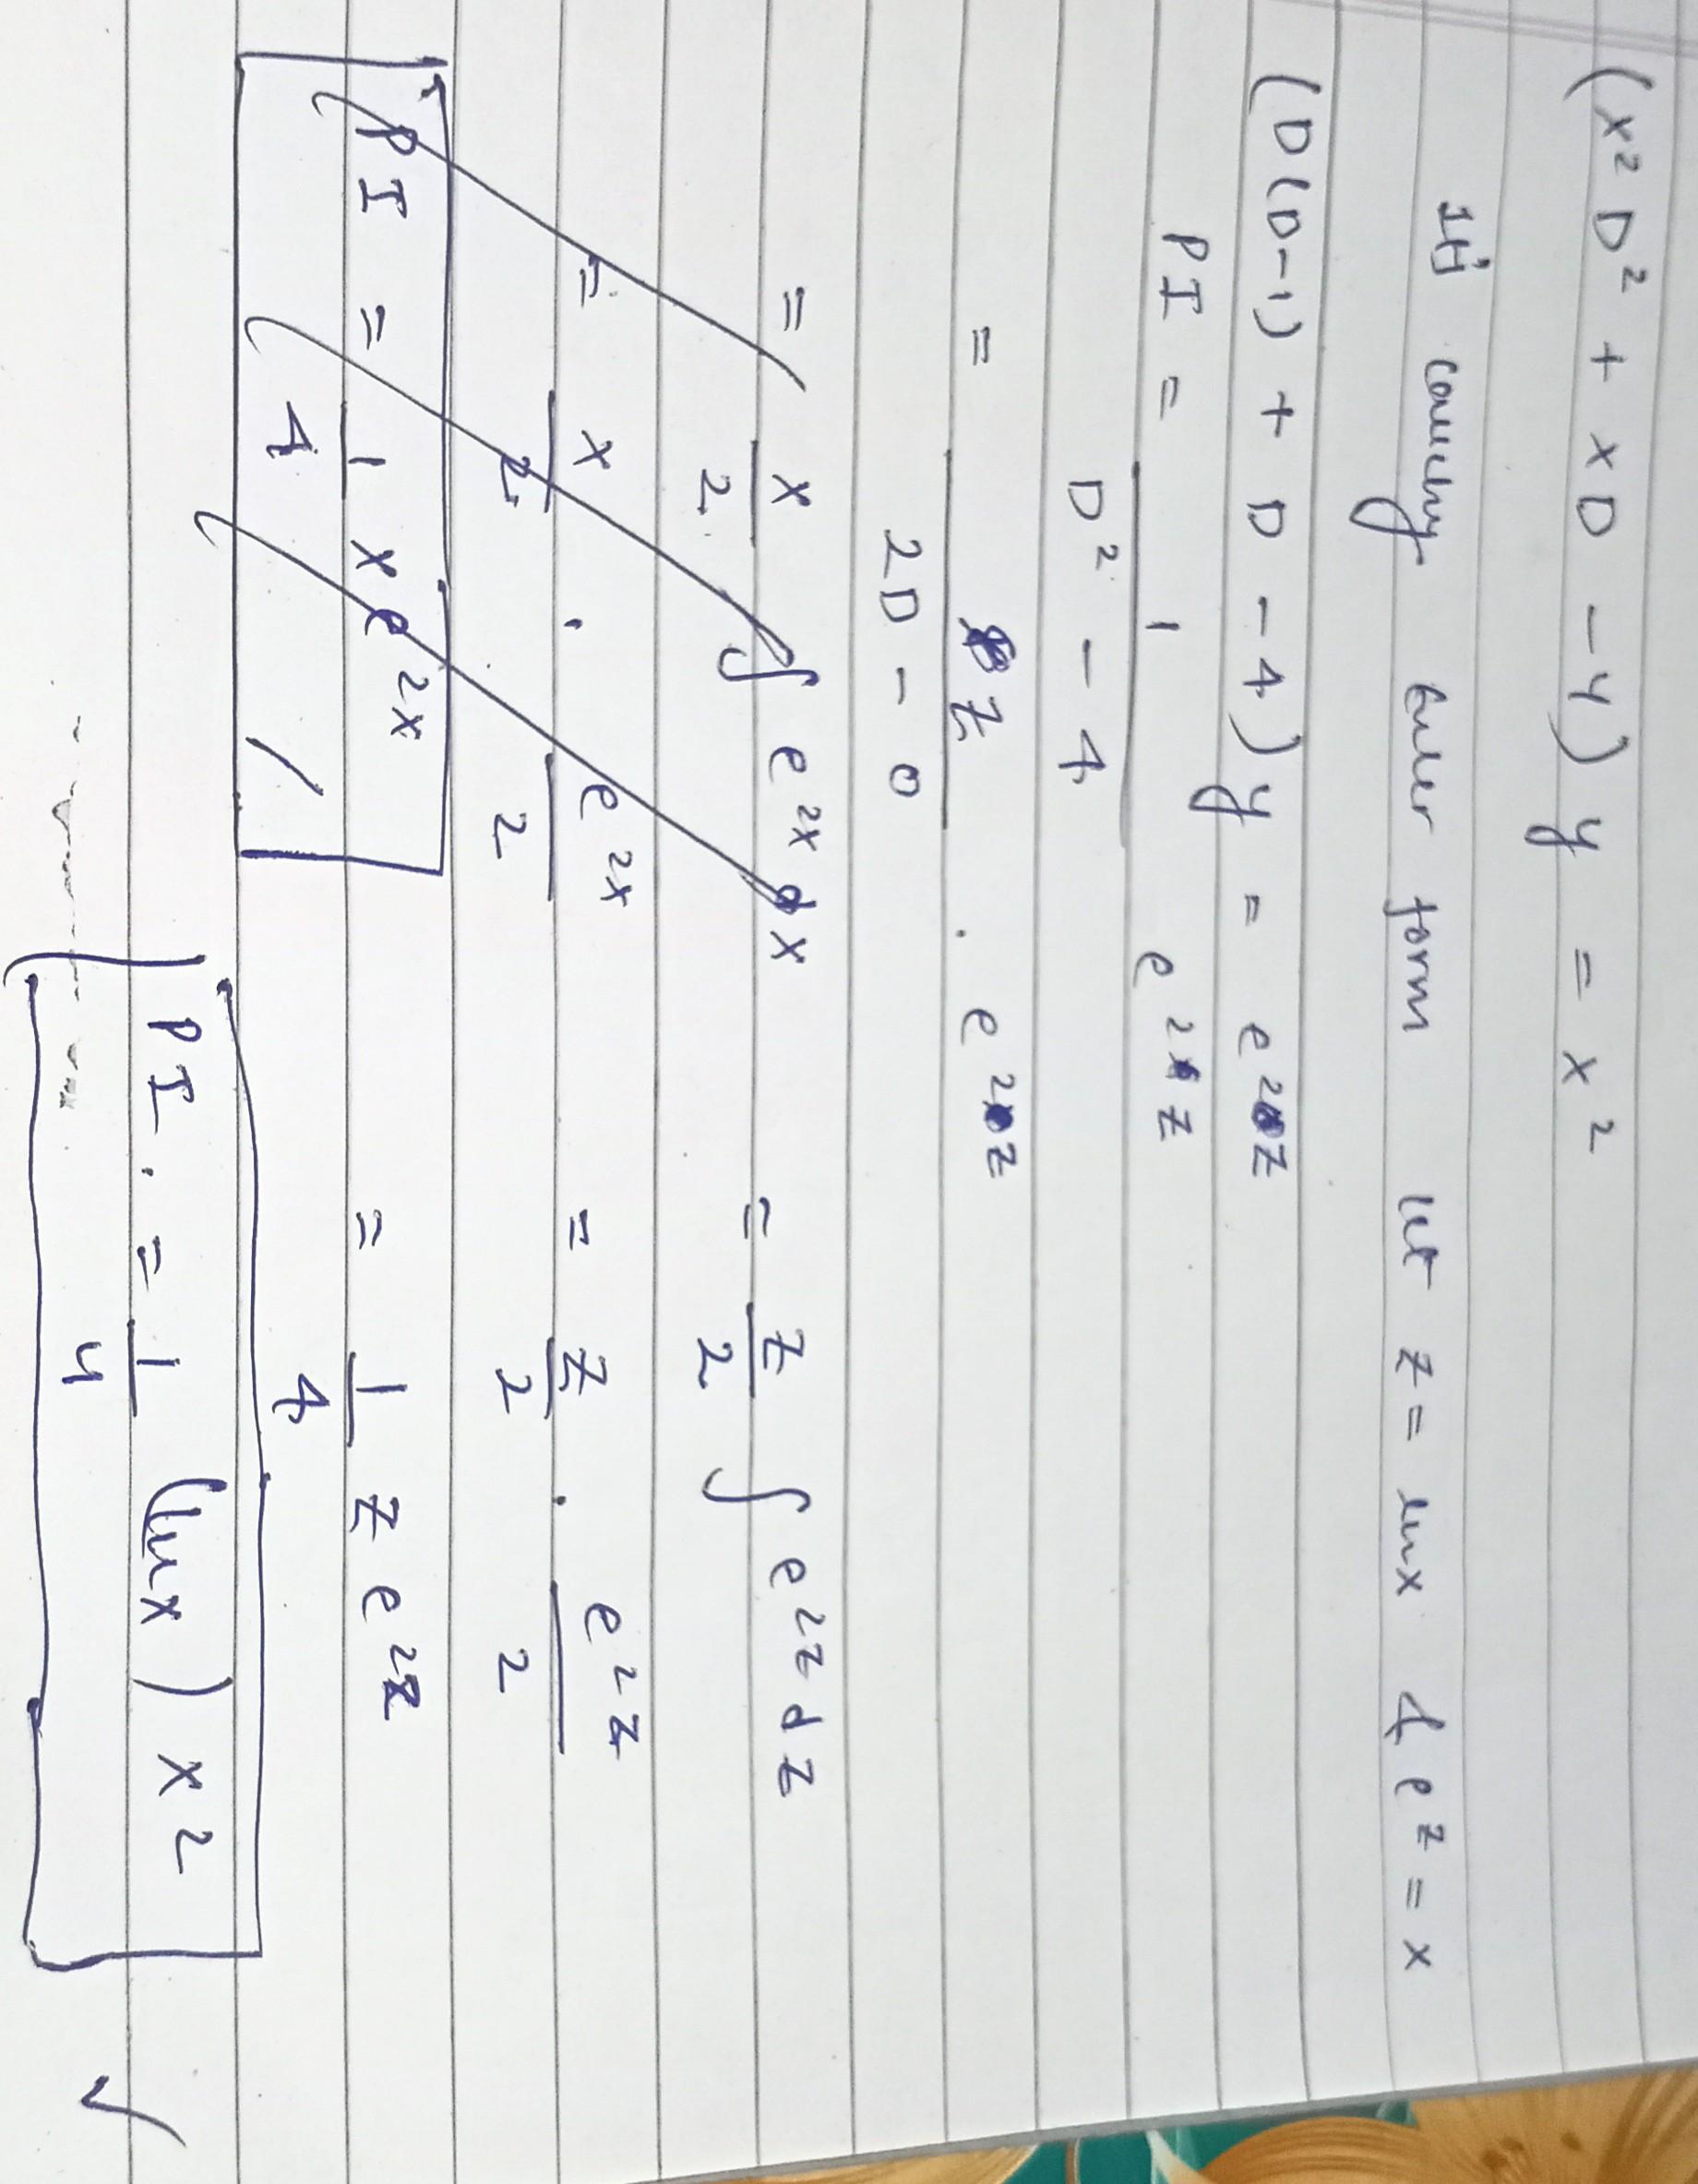 (x² D² + xD - 4) y = x²
It's cauchy euler form let z = lnx & e^z = x
(D(D-1) + D - 4) y = e^2z
PI = 1 / (D² - 4) e^2z
= z / (2D - 0) . e^2z
= x/2 ∫ e^2x dx
= x/2 . e^2x / 2
PI = 1/4 x e^2x
= z/2 ∫ e^2z dz
= z/2 . e^2z / 2
= 1/4 z e^2z
PI. = 1/4 (lnx) x²